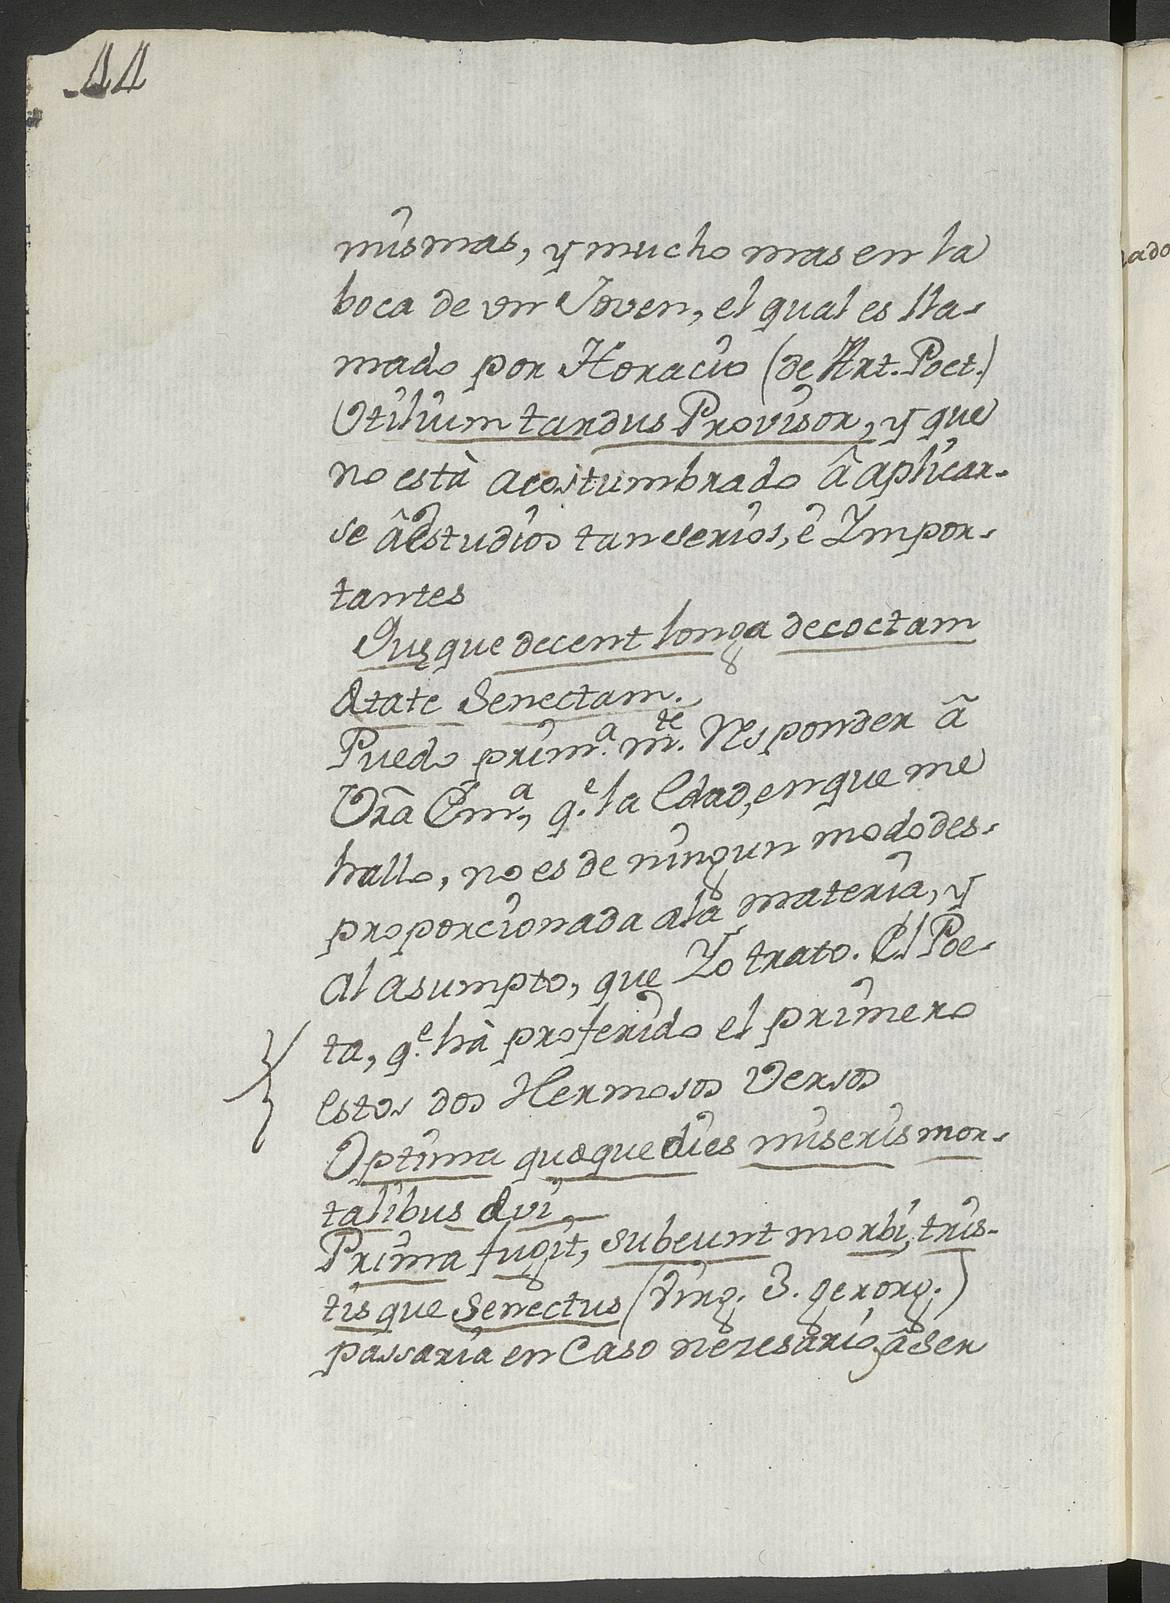 44
mismas, y mucho mas en la
boca de vn Joven, el qual es lla-
mado por Horacio (de Art. Poet.)
Vtilium tardus Provisor, y que
no està acostumbrado â aplicar-
se â estudios tan serios, ê Impor-
tantes
Quęque decent longa decoctam
ætate Senectam.
Puedo prim.ª m.te Responder â
Vrã Em.ª, q.e la Edad, en que me
hallo, no es de ningun modo des-
proporcionada a la materia, y
al asumpto, que Yo trato. El Poe-
ta, q.e hà proferido el primero
estos dos Hermosos Versos
Optima quæque dies miseris mor-
talibus ævi
Prima fugit, subeunt morbi, tris-
tisque Senectus (Virg. 3. georg.)
passaria en Caso nezesario, â ser
ado